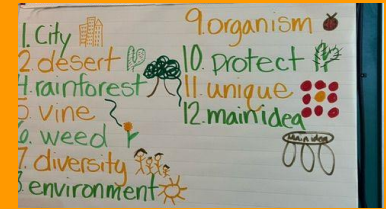 1. City
2. desert
4. rainforest
5. vine
6. weed
7. diversity
8. environment
9. organism
10. protect
11. unique
12. main idea
Main idea